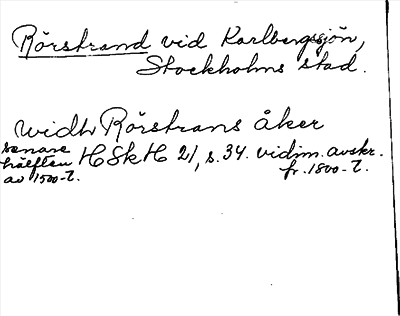 Rörstrand vid Karlbergssjön,
Stockholms stad.
widh Rörstrans åker
senare
hälften
av 1500-t.
HSkH 21, s. 34. vidim. avskr.
fr. 1800-t.